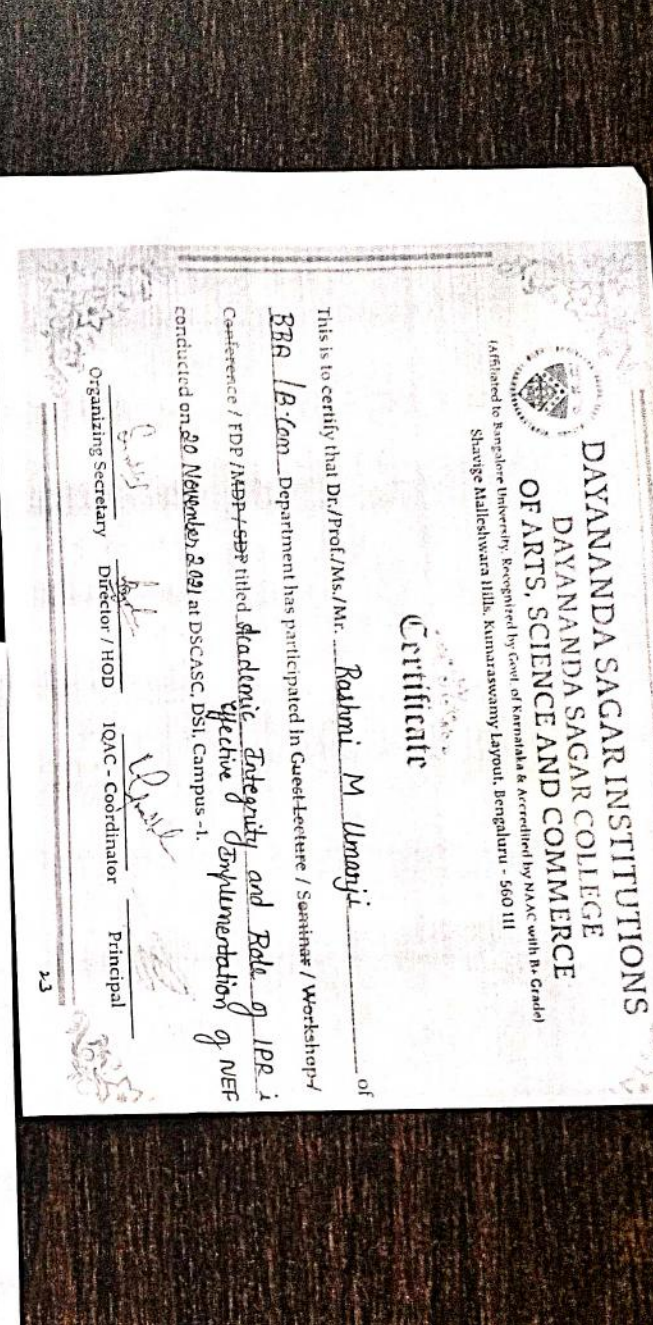 DAYANANDA SAGAR INSTITUTIONS
DAYANANDA SAGAR COLLEGE
OF ARTS, SCIENCE AND COMMERCE
(Affiliated to Bangalore University, Recognised by Govt. of Karnataka & Accredited by NAAC with B+ Grade)
Shavige Malleshwara Hills, Kumaraswamy Layout, Bengaluru - 560 111
Certificate
This is to certify that Dr./Prof./Ms./Mr. Rashmi M Umarji of
BBA / B.Com Department has participated in Guest Lecture / Seminar / Workshop /
Conference / FDP / MDP / SDP titled Academic Integrity and Role of IPR i
effective Implementation of NEP
conducted on 20 November 2021 at DSCASC, DSI, Campus -1.
Organizing Secretary Director / HOD IQAC - Coordinator Principal
23